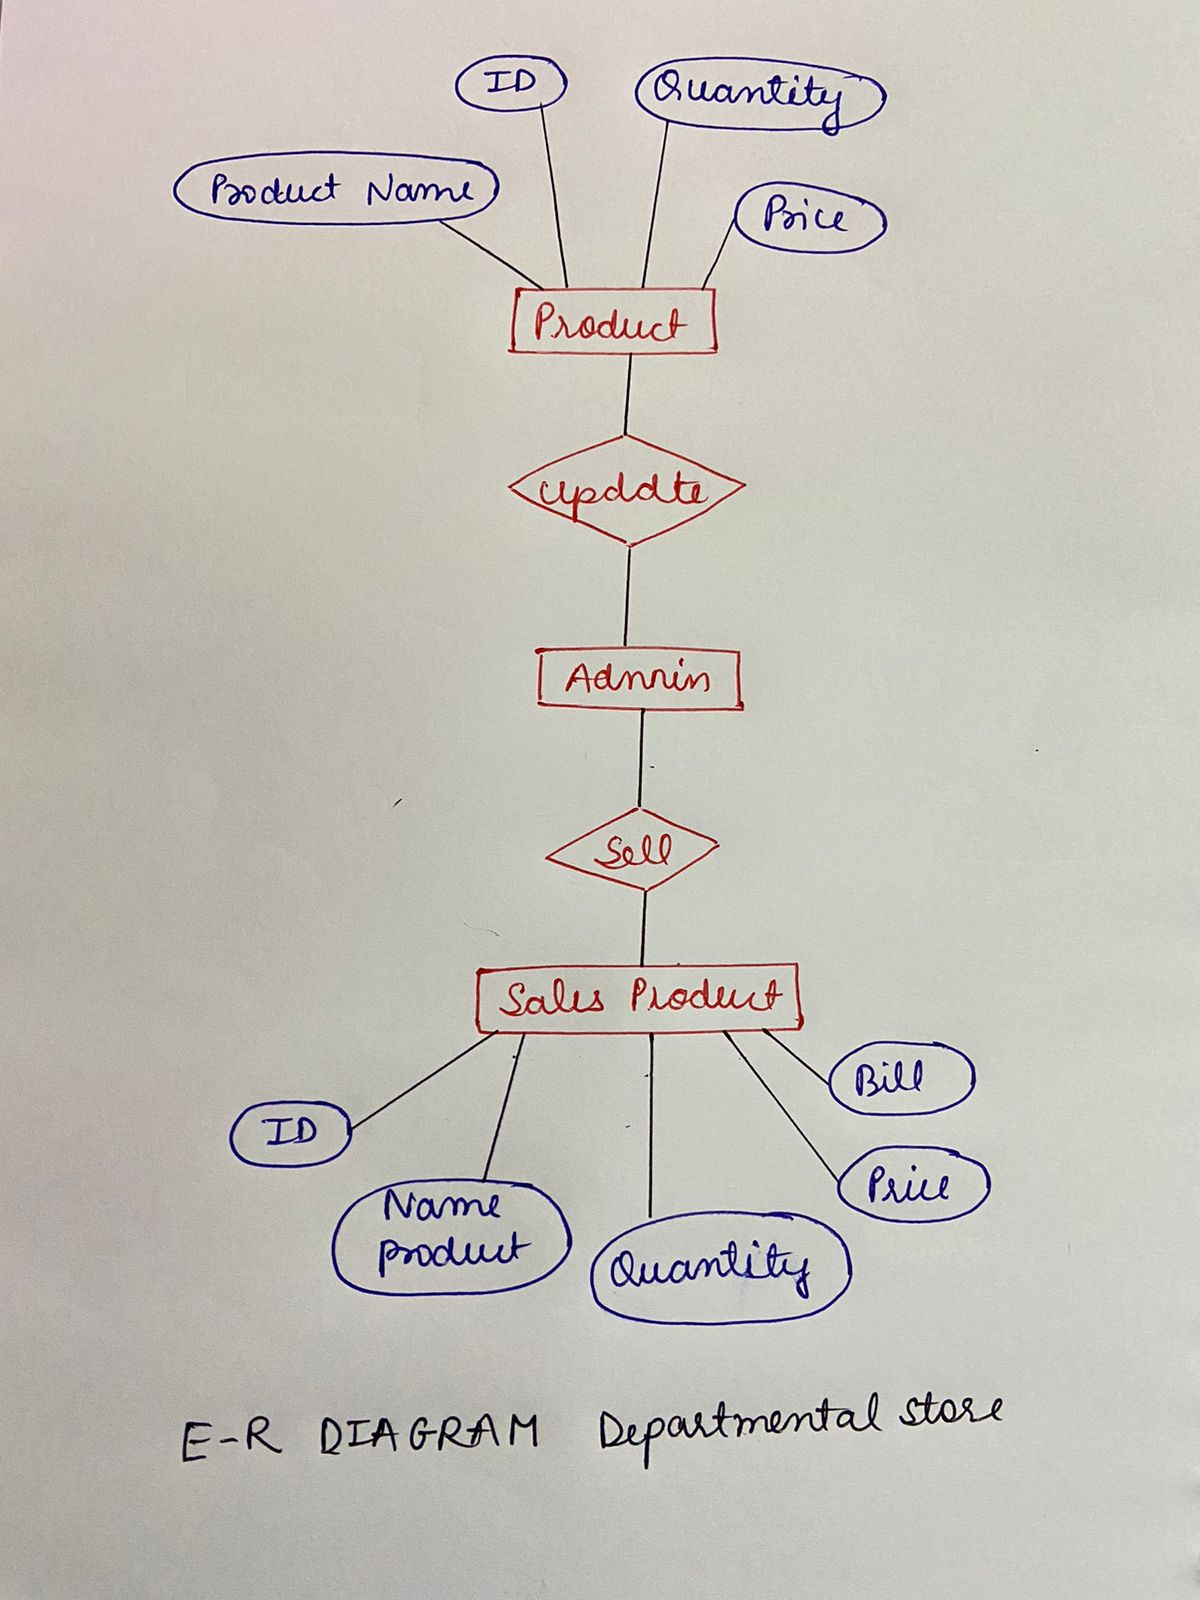 ID
Quantity
Product Name
Price
Product
Update
Admin
Sell
Sales Product
Bill
ID
Price
Name
product
Quantity
E-R DIAGRAM Departmental store